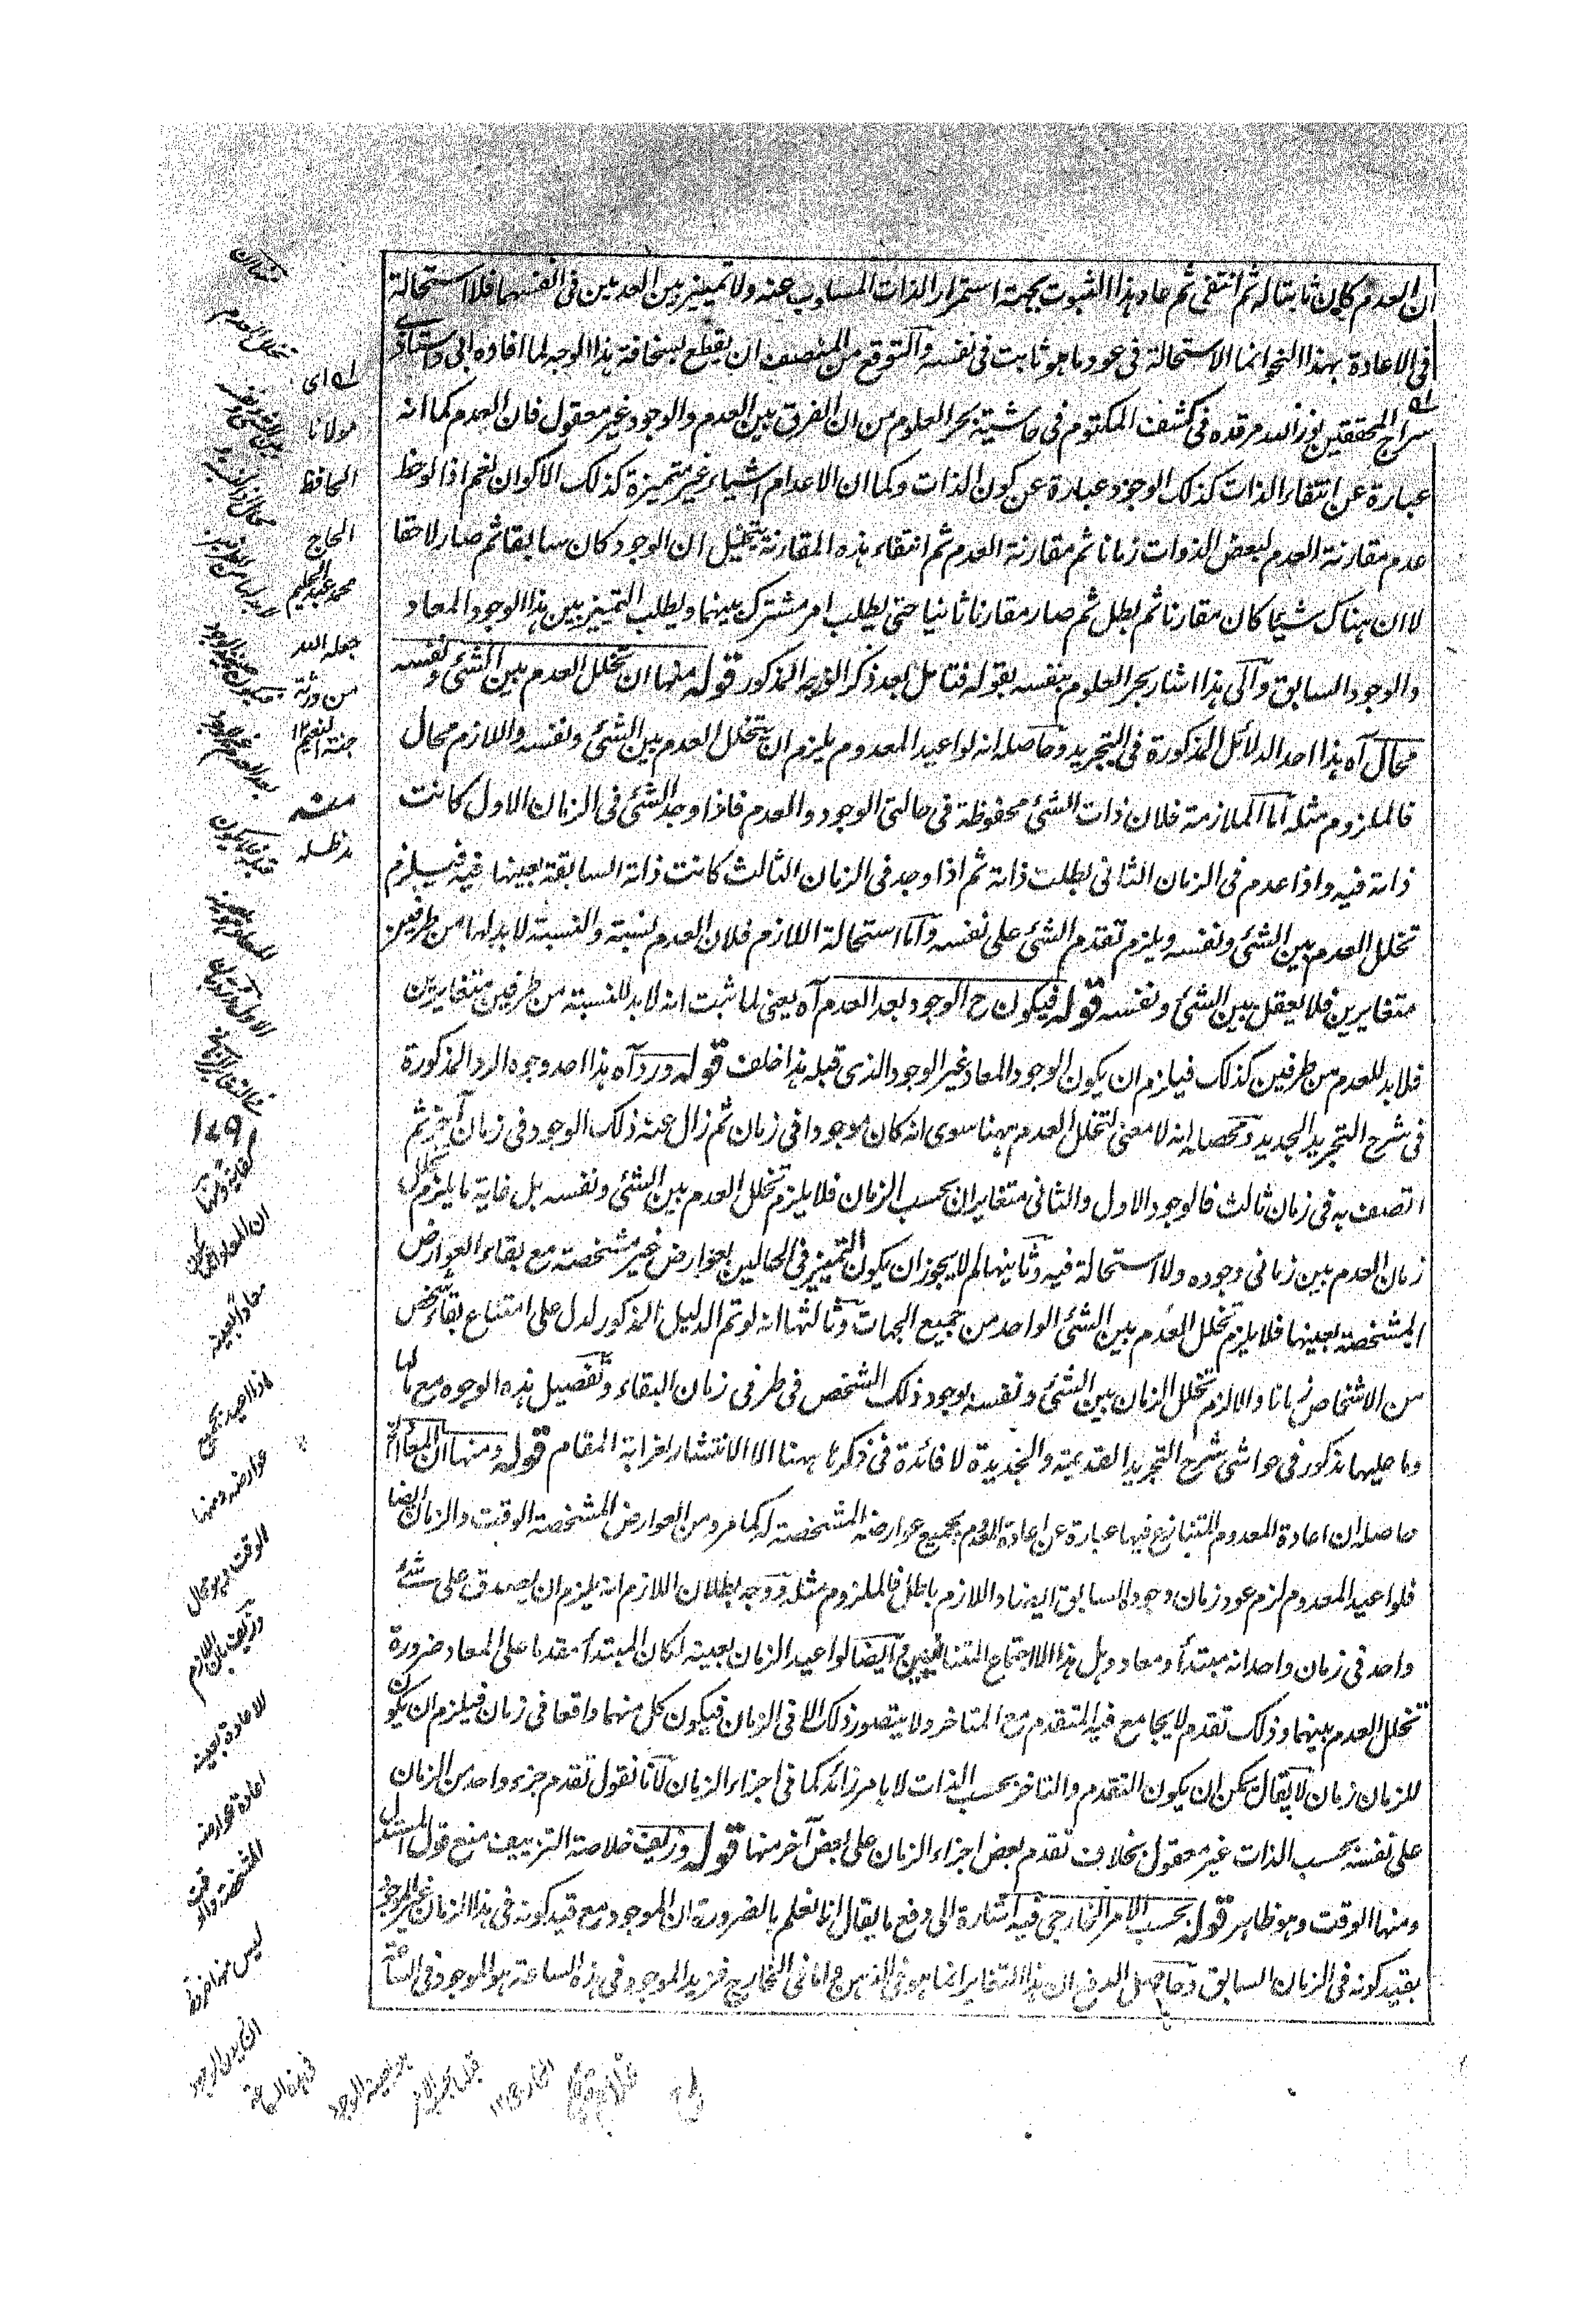 ان العدم كان ثابتا له ثم انتفى ثم عاد هذا الثبوت بجهة استمرار الذات المسلوب عنه ولا تمييز بين العدمين فى انفسهما فلا استحالة
فى الاعادة بهذا النحو انما الاستحالة فى عود ما هو ثابت فى نفسه والتوقع من المنصف ان يقطع بسخافة هذا الوجه لما افاده ابى واستاذى
سراج المحققين نور الله مرقده فى كشف المكتوم فى حاشية بحر العلوم من ان الفرق بين العدم والوجود غير معقول فان العدم كما انه
عبارة عن انتفاء الذات كذلك الوجود عبارة عن كون الذات وكما ان الاعدام اشياء غير متميزة كذلك الاكوان نعم اذا لوحظ
عدم مقارنة العدم لبعض الذوات زمانا ثم مقارنة العدم ثم انتفاء هذه المقارنة يتخيل ان الوجود كان سابقا ثم صار لاحقا
لا ان هناك شيئا كان مقارنا ثم بطل ثم صار مقارنا ثانيا حتى يطلب امر مشترك بينهما ويطلب التمييز بين هذا الوجود المعاد
والوجود السابق والى هذا اشار بحر العلوم بنفسه بقوله فتامل بعد ذكر الوجه المذكور قوله منها ان تخلل العدم بين الشئ ونفسه
محال آه هذا احد الدلائل المذكورة فى التجريد وحاصله انه لو اعيد المعدوم يلزم ان يتخلل العدم بين الشئ ونفسه واللازم محال
فالملزوم مثله اما الملازمة فلان ذات الشئ محفوظة فى حالتى الوجود والعدم فاذا وجد الشئ فى الزمان الاول كانت
ذاته فيه واذا عدم فى الزمان الثانى بطلت ذاته ثم اذا وجد فى الزمان الثالث كانت ذاته السابقة بعينها فيه فيلزم
تخلل العدم بين الشئ ونفسه ويلزم تقدم الشئ على نفسه واما استحالة اللازم فلان العدم نسبة والنسبة لا بد لها من طرفين
متغايرين فلا يعقل بين الشئ ونفسه قوله فيكون ح الوجود بعد العدم آه يعنى لما ثبت انه لا بد للنسبة من طرفين متغايرين
فلا بد للعدم من طرفين كذلك فيلزم ان يكون الوجود المعاد غير الوجود الذى قبله هذا خلف قوله ورد آه هذا احد وجوه الرد المذكورة
فى شرح التجريد الجديد ومحصله انه لا معنى لتخلل العدم ههنا سوى انه كان موجودا فى زمان ثم زال عنه ذلك الوجود فى زمان آخر ثم
اتصف به فى زمان ثالث فالوجود الاول والثانى متغايران بحسب الزمان فلا يلزم تخلل العدم بين الشئ ونفسه بل غاية ما يلزم تخلل
زمان العدم بين زمانى وجوده ولا استحالة فيه وثانيها لم لا يجوز ان يكون التميز فى الحالين بعوارض غير مشخصة مع بقاء العوارض
المشخصة بعينها فلا يلزم تخلل العدم بين الشئ الواحد من جميع الجهات وثالثها انه لو تم الدليل المذكور لدل على امتناع بقاء شخص
من الاشخاص زمانا والا لزم تخلل الزمان بين الشئ ونفسه بوجود ذلك الشخص فى طرفى زمان البقاء وتفصيل هذه الوجوه مع مالها
وما عليها مذكور فى حواشى شرح التجريد القديمة والجديدة لا فائدة فى ذكرها ههنا الا الانتشار لغرابة المقام قوله ومنها ان المعاد آه
حاصله ان اعادة المعدوم المتنازع فيها عبارة عن اعادة المعدوم بجميع عوارضه المشخصة له كما مر ومن العوارض المشخصة الوقت والزمان ايضا
فلو اعيد المعدوم لزم عود زمان وجوده السابق ايضا واللازم باطل فالملزوم مثله ووجه بطلان اللازم انه يلزم ان يصدق على شئ
واحد فى زمان واحد انه مبتدأ ومعاد وهل هذا الا اجتماع المتنافيين وايضا لو اعيد الزمان بعينه لكان المبتدأ مقدما على المعاد ضرورة
تخلل العدم بينهما وذلك تقدم لا يجامع فيه المتقدم مع المتاخر ولا يتصور ذلك الا فى الزمان فيكون كل منهما واقعا فى زمان فيلزم ان يكون
للزمان زمان لا يقال يمكن ان يكون التقدم والتاخر بحسب الذات لا بامر زائد كما فى اجزاء الزمان لانا نقول تقدم جزء واحد من الزمان
على نفسه بحسب الذات غير معقول بخلاف تقدم بعض اجزاء الزمان على بعض آخر منها قوله وزيف خلاصة التزييف منع قول المستدل
ومنها الوقت وهو ظاهر قوله بحسب الامر الخارجى فيه اشارة الى دفع ما يقال انا نعلم بالضرورة ان الموجود مع قيد كونه فى هذا الزمان غير الموجود
بقيد كونه فى الزمان السابق وحاصل الدفع ان هذا التغاير انما هو فى الذهن واما فى الخارج فزيد الموجود فى هذه الساعة هو الموجود فى
له اى
مولانا
الحافظ
الحاج
محمد عبد الحليم
جعله الله
من ورثة
جنة النعيم ١٢
منه
مد ظله
ان المعاد انما يكون
معادا بعينه
اذا اعيد بجميع
عوارضه ومنها
الوقت
للاعادة بعينه
اعادة عوارضه
المشخصة والوقت
ليس منها ضرورة
ان زيد الموجود
فى هذه الساعة
هو بعينه الموجود
قبلها بحسب الامر
الخارجى ١٢